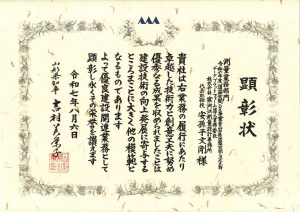 顕彰状
測量業務部門
安孫子文剛様
貴社は右業務の履行にあたり
卓越した技術力と創意工夫に努め
優秀なる成果を収められましたことは
建設技術の向上発展に寄与する
ところまことに大きく他の模範と
なるものであります
よって優良建設関連業務として
顕彰し永くその栄誉を讃えます
令和七年八月六日
山形県知事
吉村美栄子